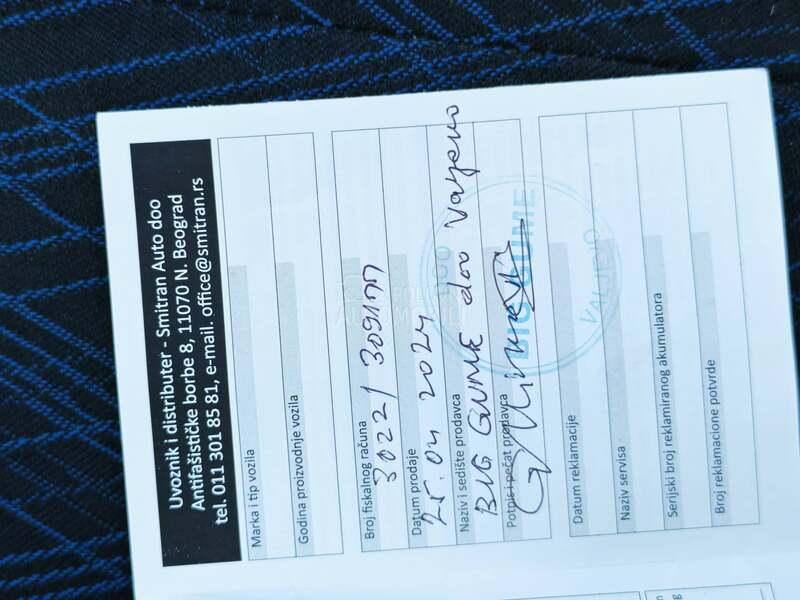 Uvoznik i distributer - Smitran Auto doo
Antifašističke borbe 8, 11070 N. Beograd
tel. 011 301 85 81, e-mail. office@smitran.rs
Marka i tip vozila
Godina proizvodnje vozila
Broj fiskalnog računa
3022/309177
Datum prodaje
25.04 2024
Naziv i sedište prodavca
BIG GUME doo Valjevo
Potpis i pečat prodavca
DOO
BIG GUME
VALJEVO
Datum reklamacije
Naziv servisa
Serijski broj reklamiranog akumulatora
Broj reklamacione potvrde